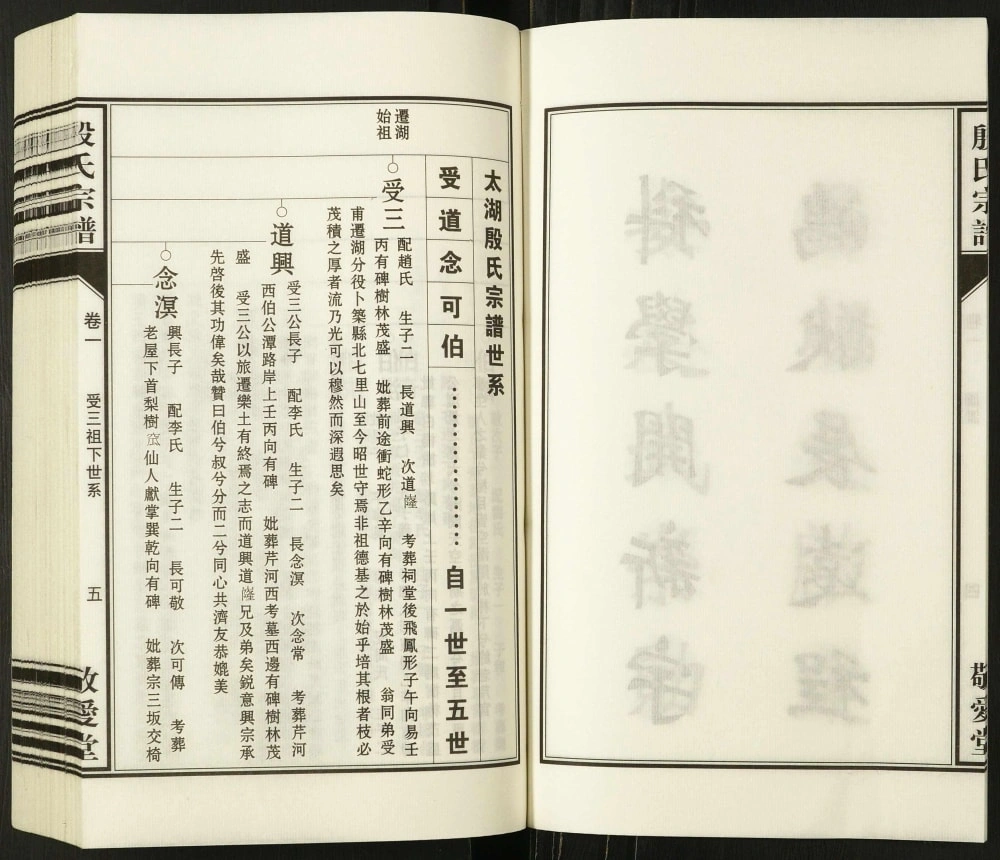 殷氏宗譜
敬愛堂
太湖殷氏宗譜世系
受道念可伯……………………自一世至五世
遷湖
始祖
受三
配趙氏 生子二 長道興 次道隆 考葬祠堂後飛鳳形子午向易壬
丙有碑樹林茂盛 妣葬前途衝蛇形乙辛向有碑樹林茂盛 翁同弟受
甫遷湖分役卜築縣北七里山至今昭世守焉非祖德基之於始乎培其根者枝必
茂積之厚者流乃光可以穆然而深遐思矣
道興
受三公長子 配李氏 生子二 長念溟 次念常 考葬芹河
西伯公潭路岸上壬丙向有碑 妣葬芹河西考墓西邊有碑樹林茂
盛 受三公以旅遷樂土有終焉之志而道興道隆兄及弟矣鋭意興宗承
先啓後其功偉矣哉贊曰伯兮叔兮分而二兮同心共濟友恭媲美
念溟
興長子 配李氏 生子二 長可敬 次可傳 考葬
老屋下首梨樹窊仙人獻掌巽乾向有碑 妣葬宗三坂交椅
殷氏宗譜
卷一
受三祖下世系
五
敬愛堂